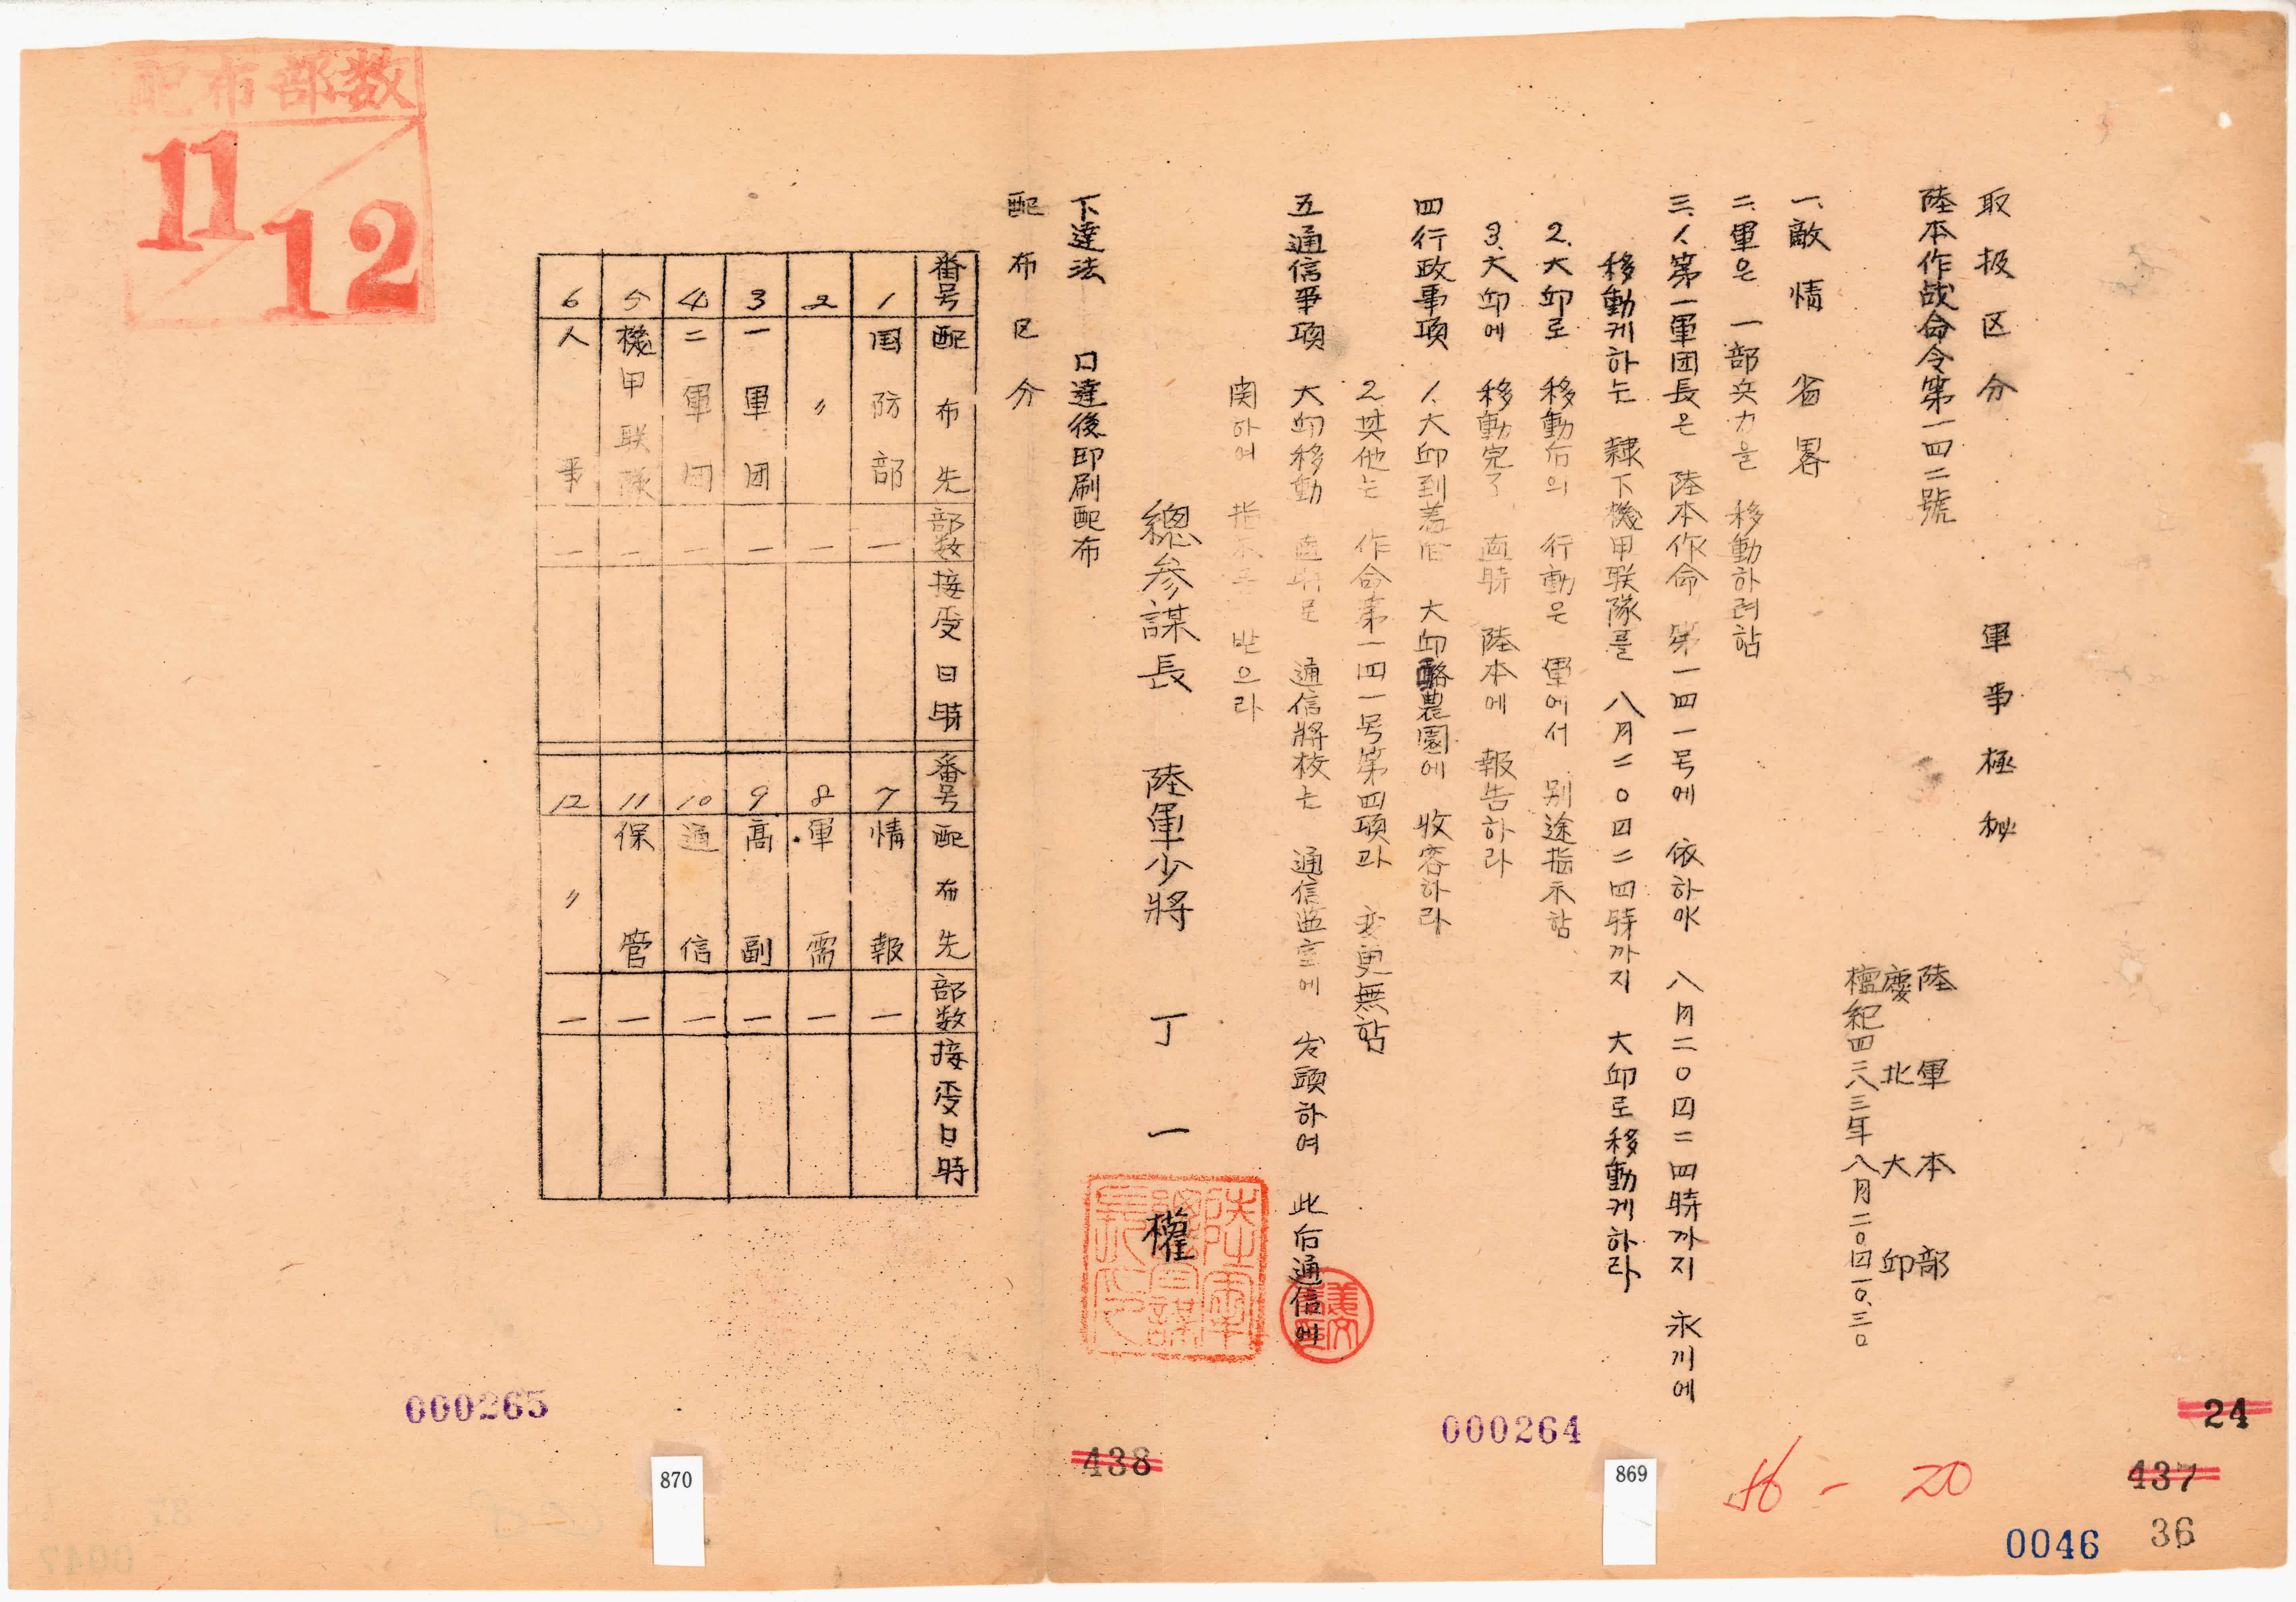 取扱区分 軍事極秘
陸本作战命令第一四二號
陸軍本部
慶北大邱
檀紀四二八三年八月二〇四一〇.三〇
一、敵情 省畧
二.軍은 一部兵力을 移動하려함
三.1.第一軍団長은 陸本作命 第一四一号에 依하야 八月二〇四二四時까지 永川에
移動케하는 隷下機甲联隊를 八月二〇四二四時까지 大邱로移動케하라
2.大邱로 移動后의 行動은 軍에서 別途指示함
3.大邱에 移動完了 直時 陸本에 報告하라
四行政事項 1.大邱到着后 大邱酪農園에 收容하라
2.其他는 作命第一四一号第四項과 変更無함
五通信事項 大邱移動 直時로 通信將校는 通信監室에 出頭하여 此后通信에
関하여 指示를 받으라
總参謀長 陸軍少將 丁一權
下達法 口達後印刷配布
配布区分
番号 配布先 部数 接受日時 番号 配布先 部数 接受日時
1 国防部 一 7 情報 一
2 〃 一 8 軍需 一
3 一軍団 一 9 高副 一
4 二軍団 一 10 通信 一
5 機甲联隊 一 11 保管 一
6 人事 一 12 〃 一
配布部数
11/12
000265
000264
438
870
869
16-20
24
437
36
0046